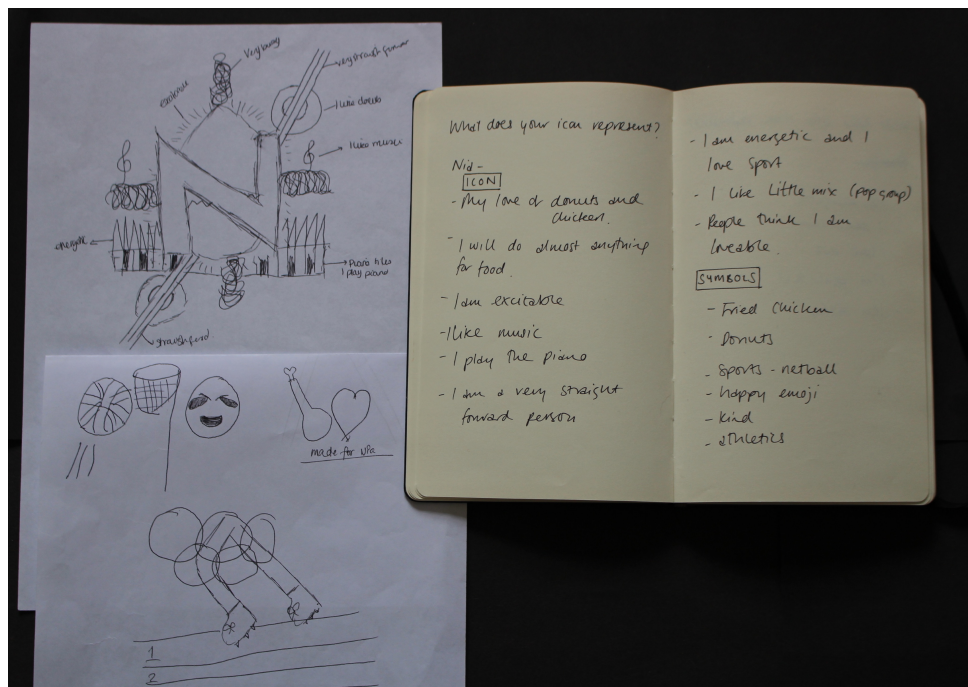 Very loving
very straight forward
excitable
I like donuts
I like music
energetic
Piano tiles
I play piano
made for
1
2
What does your icon represent?
ICON
- My love of donuts and
chicken.
- I will do almost anything
for food.
- I am excitable
- I like music
- I play the piano
- I am a very straight
forward person
- I am energetic and I
love sport
- I like Little mix (pop group)
- People think I am
loveable.
SYMBOLS
- Fried chicken
- Donuts
- Sports - netball
- happy emoji
- Kind
- athletics